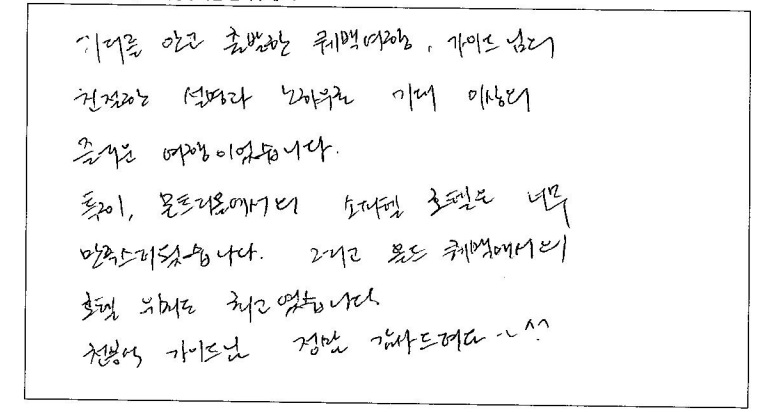 기대를 안고 출발한 퀘백여행, 가이드님의
친절한 설명과 노하우로 기대 이상의
즐거운 여행이었습니다.
특히, 몬트리올에서의 소피텔 호텔은 너무
만족스러웠습니다. 그리고 올드 퀘백에서의
호텔 위치도 최고였습니다.
가이드님 정말 감사드려요 ~ ^^